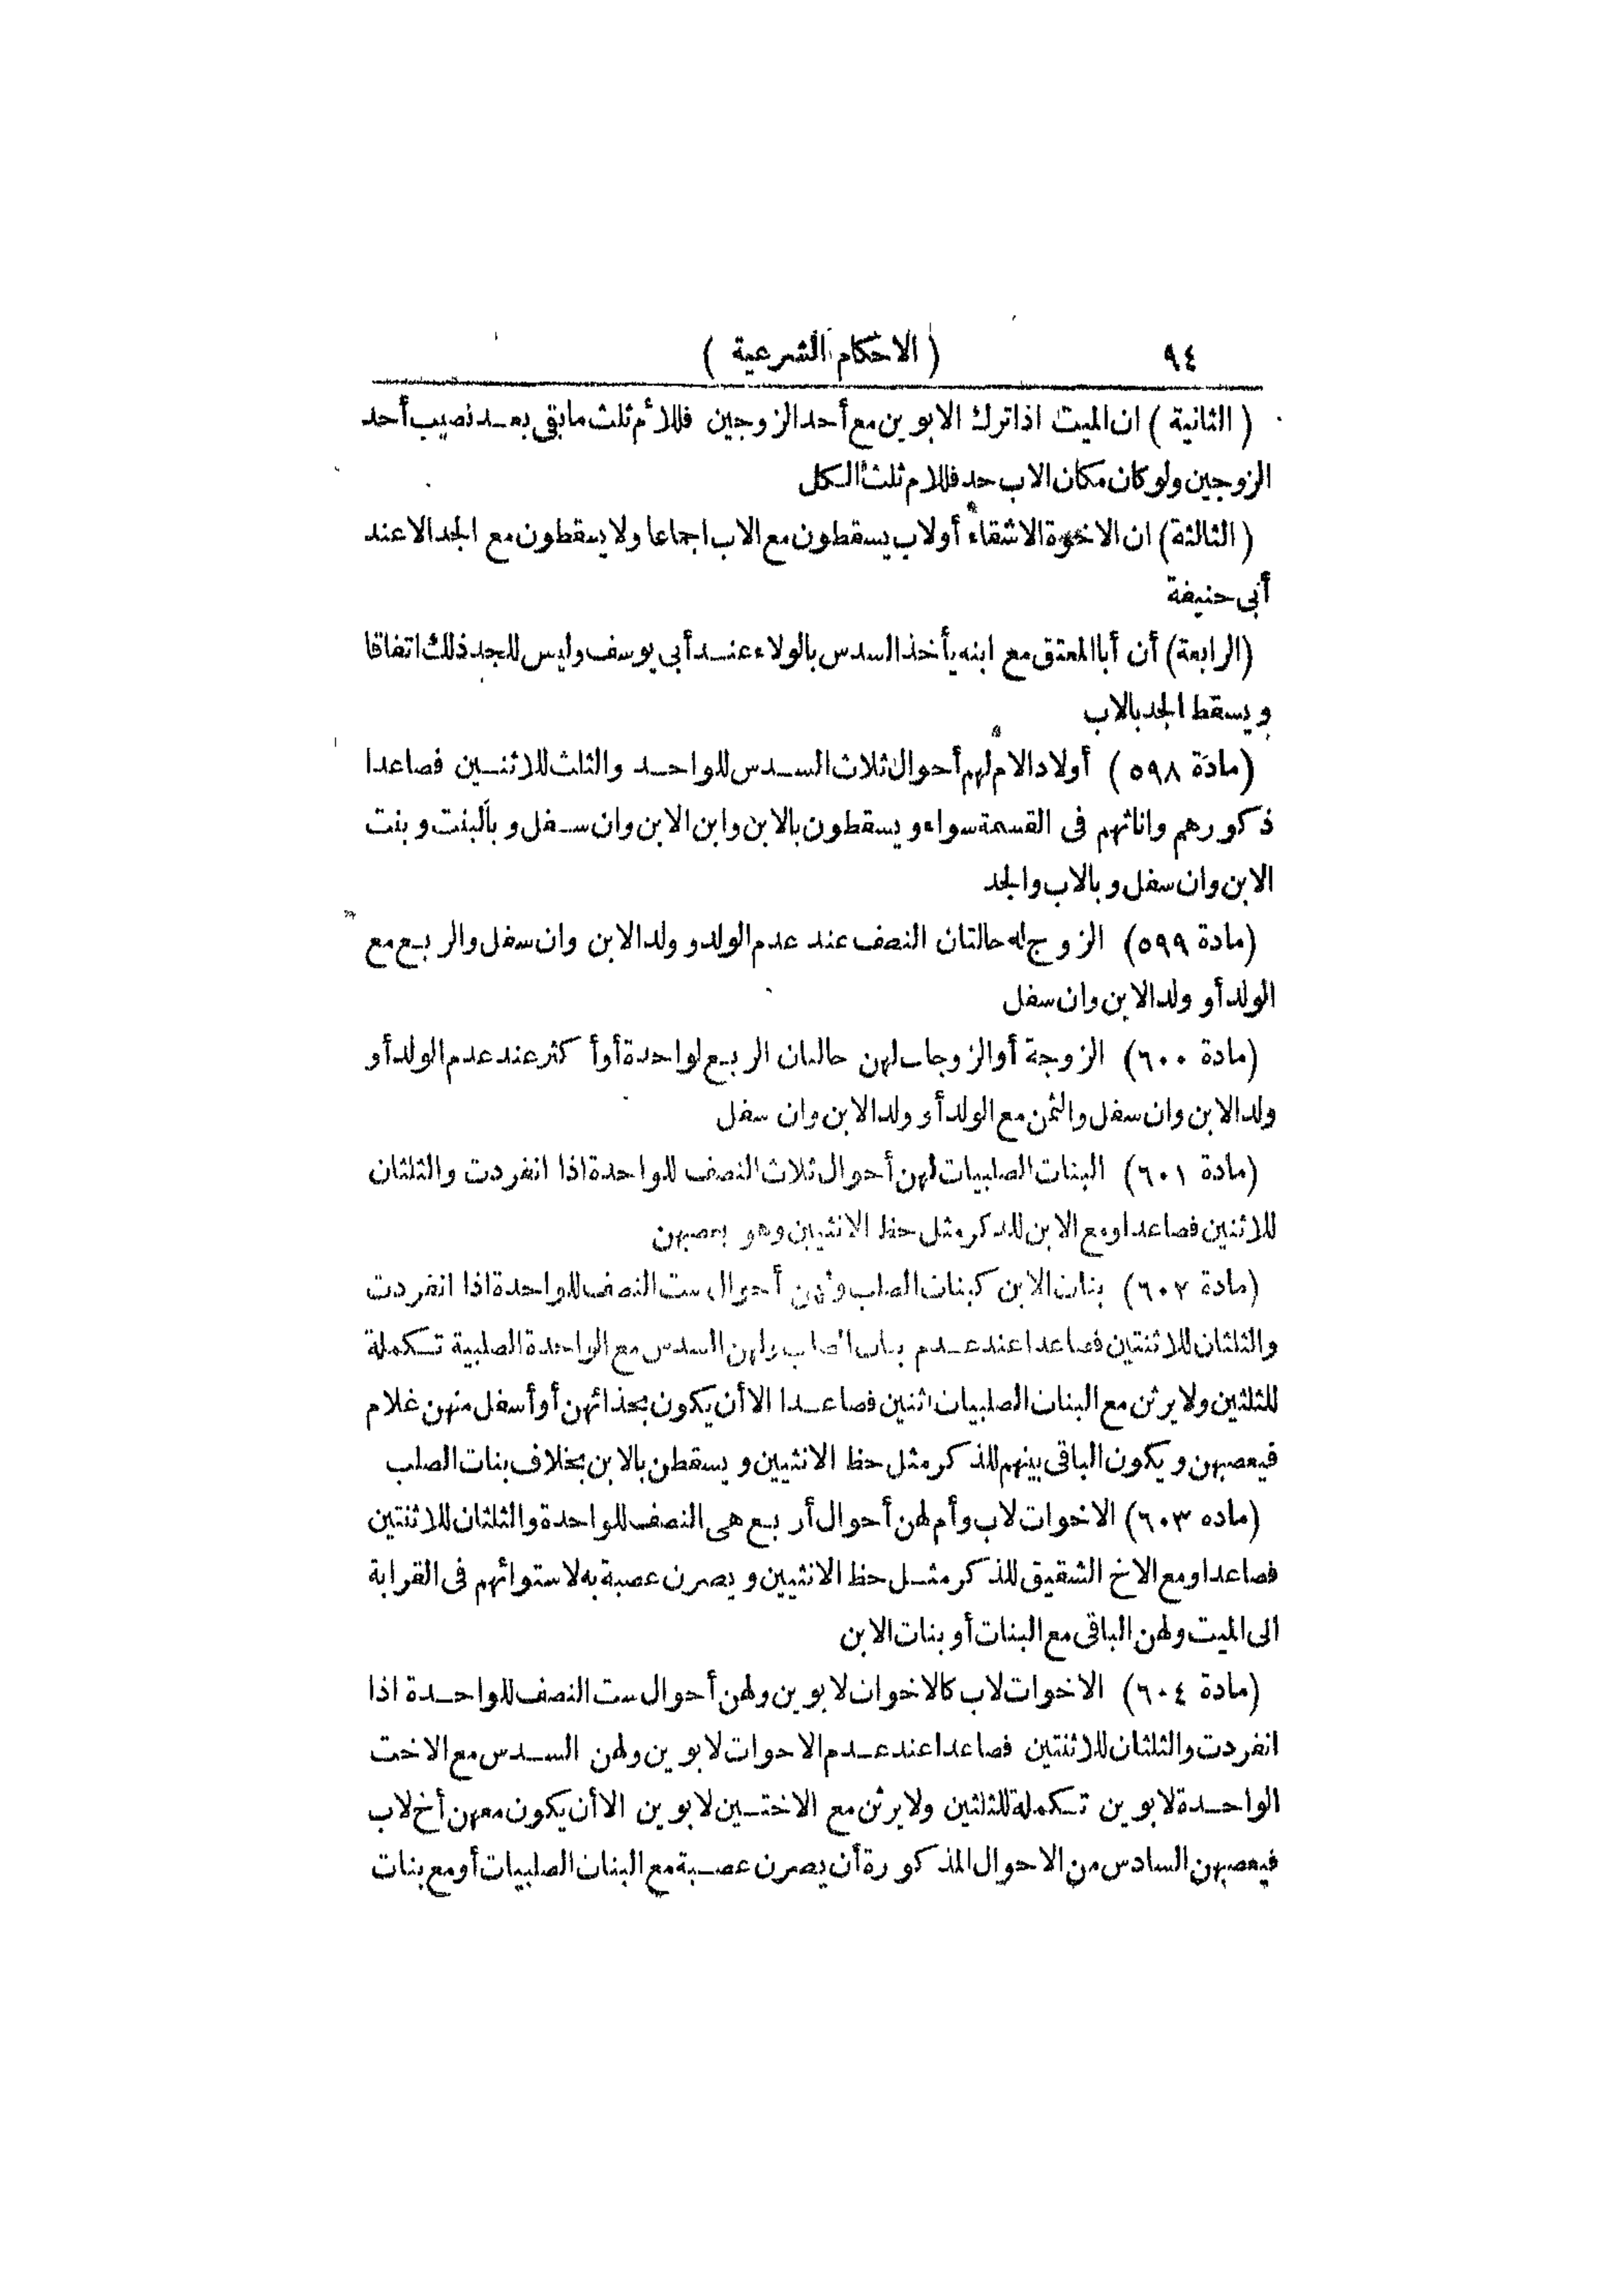 ٩٤ ( الاحكام الشرعية )
( الثانية ) ان الميت اذا ترك الابوين مع أحد الزوجين فللأم ثلث ما بقى بعد نصيب أحد
الزوجين ولو كان مكان الاب جد فللام ثلث الكل
( الثالثة ) ان الاخوة الاشقاء أولاب يسقطون مع الاب اجماعا ولا يسقطون مع الجد الا عند
أبى حنيفة
(الرابعة) أن أبا المعتق مع ابنه يأخذ السدس بالولاء عند أبى يوسف وليس للجد ذلك اتفاقا
ويسقط الجد بالاب
(مادة ٥٩٨ ) أولاد الام لهم أحوال ثلاث السدس للواحد والثلث للاثنين فصاعدا
ذكورهم واناثهم فى القسمة سواء ويسقطون بالابن وابن الابن وان سفل وبالبنت وبنت
الابن وان سفل وبالاب والجد
(مادة ٥٩٩) الزوج له حالتان النصف عند عدم الولد وولد الابن وان سفل والربع مع
الولد أو ولد الابن وان سفل
(مادة ٦٠٠) الزوجة أو الزوجات لهن حالتان الربع لواحدة أو أكثر عند عدم الولد أو
ولد الابن وان سفل والثمن مع الولد أو ولد الابن وان سفل
(مادة ٦٠١) البنات الصلبيات لهن أحوال ثلاث النصف للواحدة اذا انفردت والثلثان
للاثنين فصاعدا ومع الابن للذكر مثل حظ الانثيين وهو يعصبهن
(مادة ٦٠٢) بنات الابن كبنات الصلب ولهن أحوال ست النصف للواحدة اذا انفردت
والثلثان للاثنتين فصاعدا عند عدم بنات الصلب ولهن السدس مع الواحدة الصلبية تكملة
للثلثين ولا يرثن مع البنات الصلبيات اثنين فصاعدا الا أن يكون بحذائهن أو أسفل منهن غلام
فيعصبهن ويكون الباقى بينهم للذكر مثل حظ الانثيين ويسقطن بالابن بخلاف بنات الصلب
(ماده ٦٠٣) الاخوات لاب وأم لهن أحوال أربع هى النصف للواحدة والثلثان للاثنتين
فصاعدا ومع الاخ الشقيق للذكر مثل حظ الانثيين ويصرن عصبة به لاستوائهم فى القرابة
الى الميت ولهن الباقى مع البنات أو بنات الابن
(مادة ٦٠٤) الاخوات لاب كالاخوات لابوين ولهن أحوال ست النصف للواحدة اذا
انفردت والثلثان للاثنتين فصاعدا عند عدم الاخوات لابوين ولهن السدس مع الاخت
الواحدة لابوين تكملة للثلثين ولا يرثن مع الاختين لابوين الا أن يكون معهن أخ لاب
فيعصبهن السادس من الاحوال المذكورة أن يصرن عصبة مع البنات الصلبيات أو مع بنات